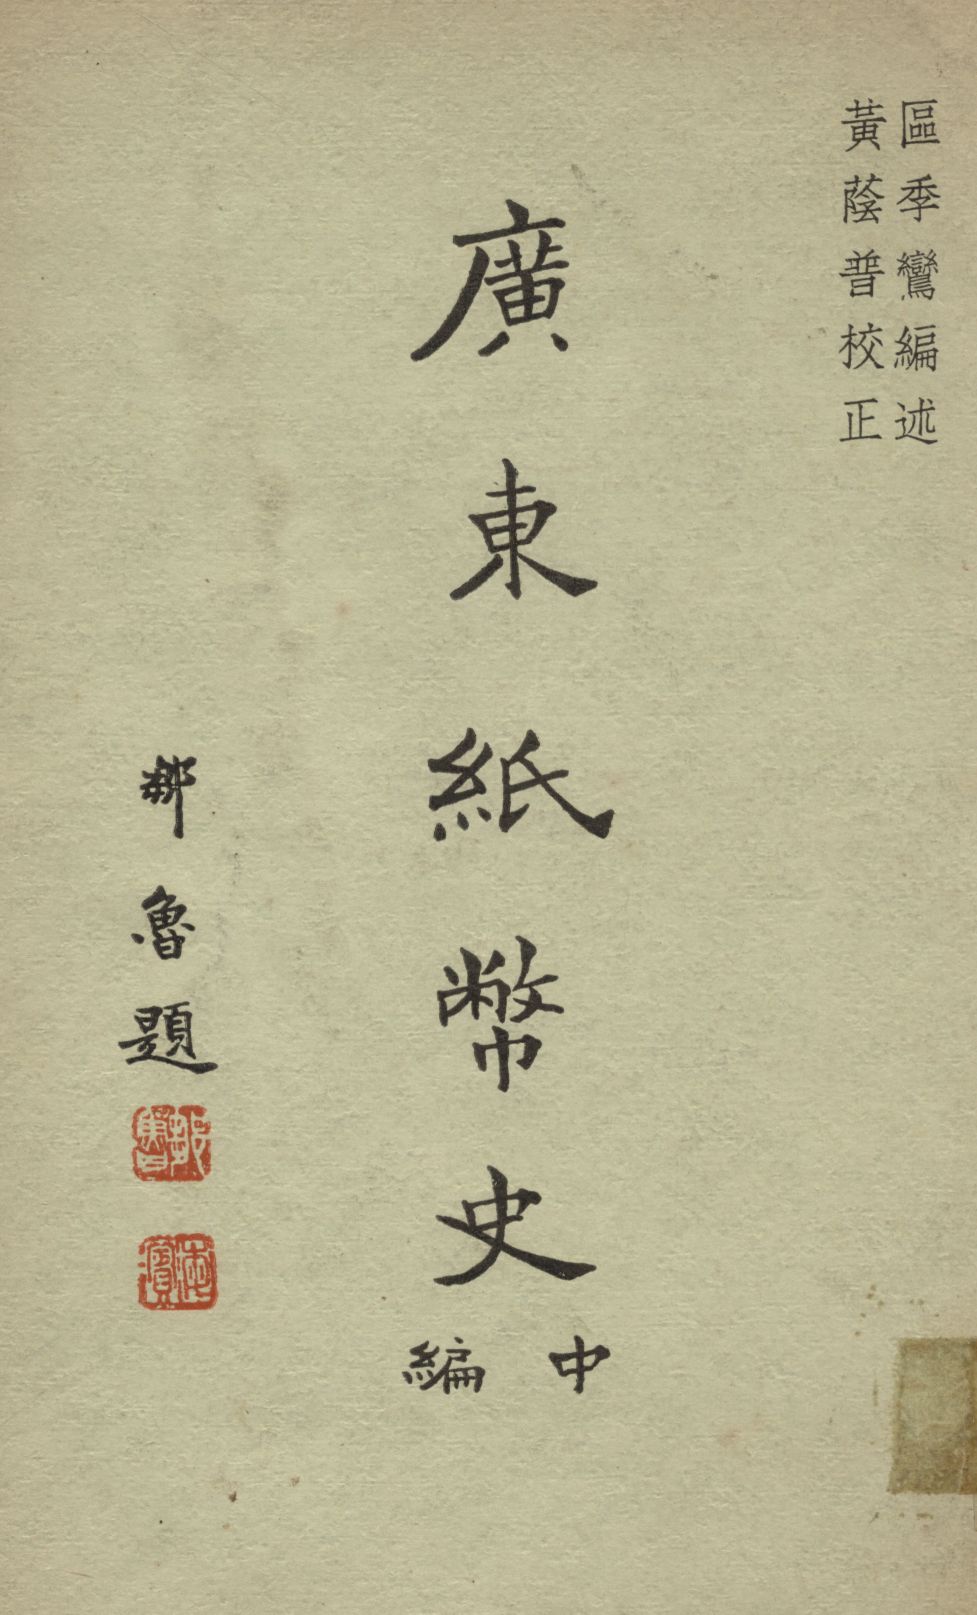 區季鸞編述
黃蔭普校正
廣東紙幣史
中編
鄒魯題
鄒魯
海濱